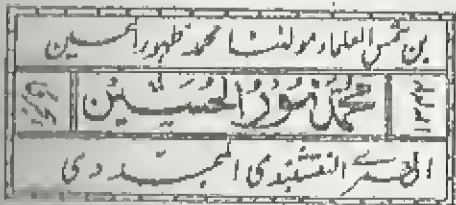 بن شمس العلماء مولنا محمد ظهور الحسين
محمد نور الحسين
العمرے النقشبندی المجددی